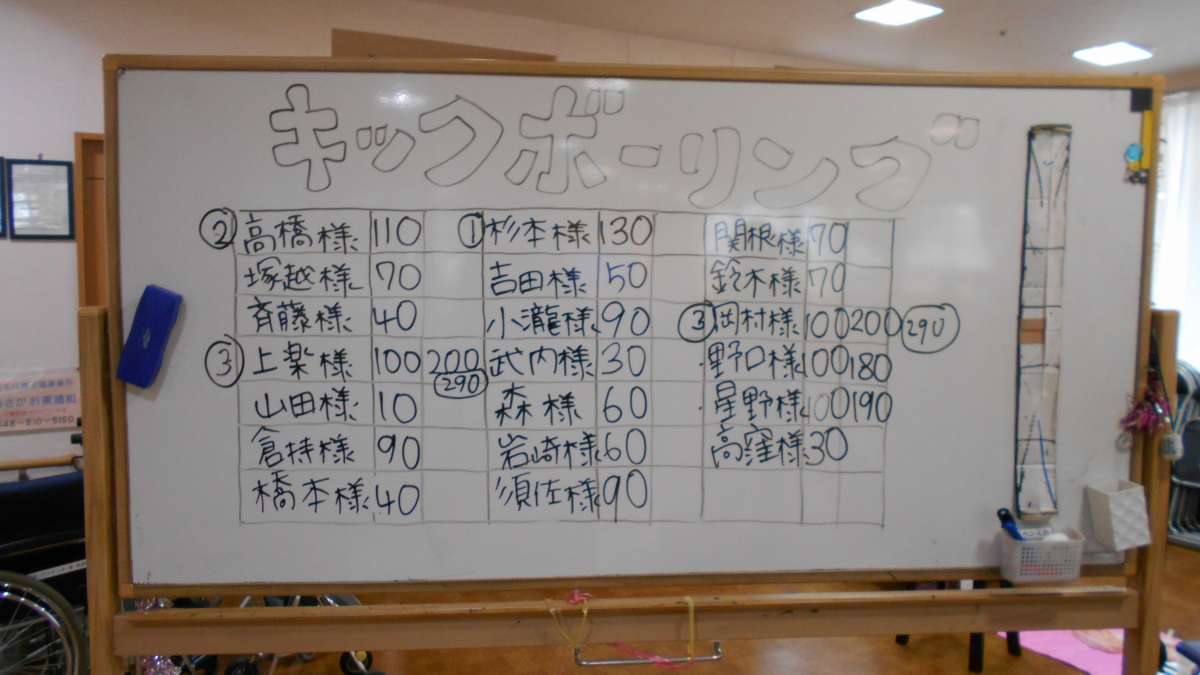 キックボーリング
② 高橋様 110 ① 杉本様 130 関根様 70
塚越様 70 吉田様 50 鈴木様 70
斉藤様 40 小瀧様 90 ③ 岡村様 100 200 290
③ 上楽様 100 200 290 武内様 30 野口様 100 180
山田様 10 森様 60 星野様 100 190
倉持様 90 岩崎様 60 高窪様 30
橋本様 40 須佐様 90